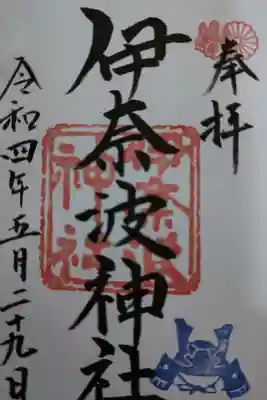 奉拝
伊奈波神社
伊奈波
神社
令和四年五月二十九日